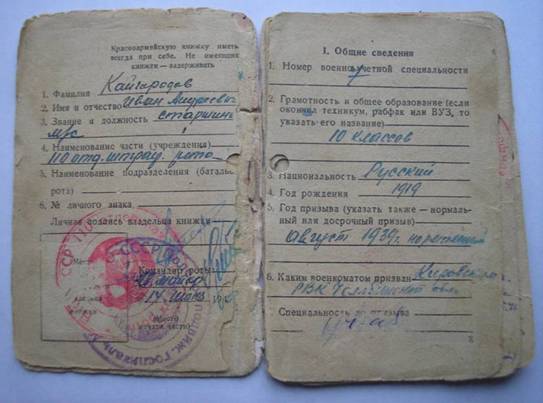 Красноармейскую книжку иметь
всегда при себе. Не имеющих
книжки — задерживать
1. Фамилия Кайгородов
2. Имя и отчество Иван
3. Звание и должность старшина
4. Наименование части (учреждения)
110 отд. штраф. рота
5. Наименование подразделения (баталь-
рота)
6. № личного знака
Личная подпись владельца книжки
Командир роты
14 19
Место
печати части
I. Общие сведения
1. Номер военно-учетной специальности
2. Грамотность и общее образование (если
окончил техникум, рабфак или ВУЗ, то
указать его название)
10 классов
3. Национальность Русский
4. Год рождения 1919
5. Год призыва (указать также — нормаль-
ный или досрочный призыв)
август 1939г.
6. Каким военкоматом призван Кировским
РВК Челябинской обл.
Специальность до призыва